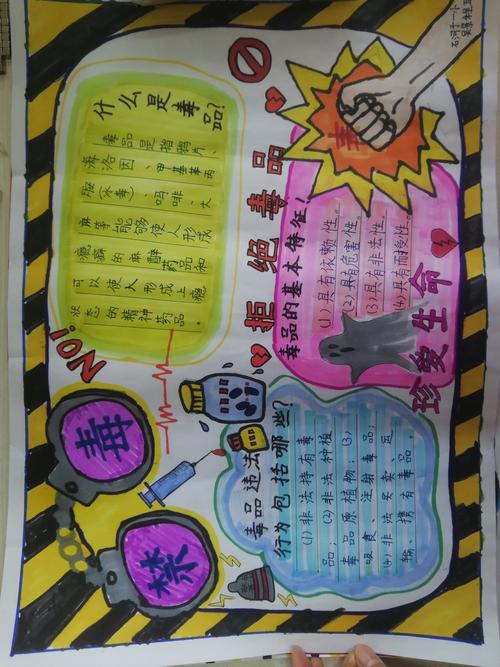 石河子一小
什么是毒品?
毒品是指鸦片、
海洛因、甲基苯丙
胺(冰毒)、吗啡、大
麻等能够使人形成
瘾癖的麻醉药品和
可以使人形成上瘾
状态的精神药品。
NO!
拒绝毒品
毒
毒品的基本特征!
(1)具有依赖性。
(2)具有危害性。
(3)具有非法性。
(4)具有耐受性。
珍爱生命
毒
禁
毒品违法
行为包括哪些?
(1)非法持有毒
品;(2)非法种植
毒品原植物;(3)
吸食、注射毒品;
(4)非法买卖、运
输、携有毒品。